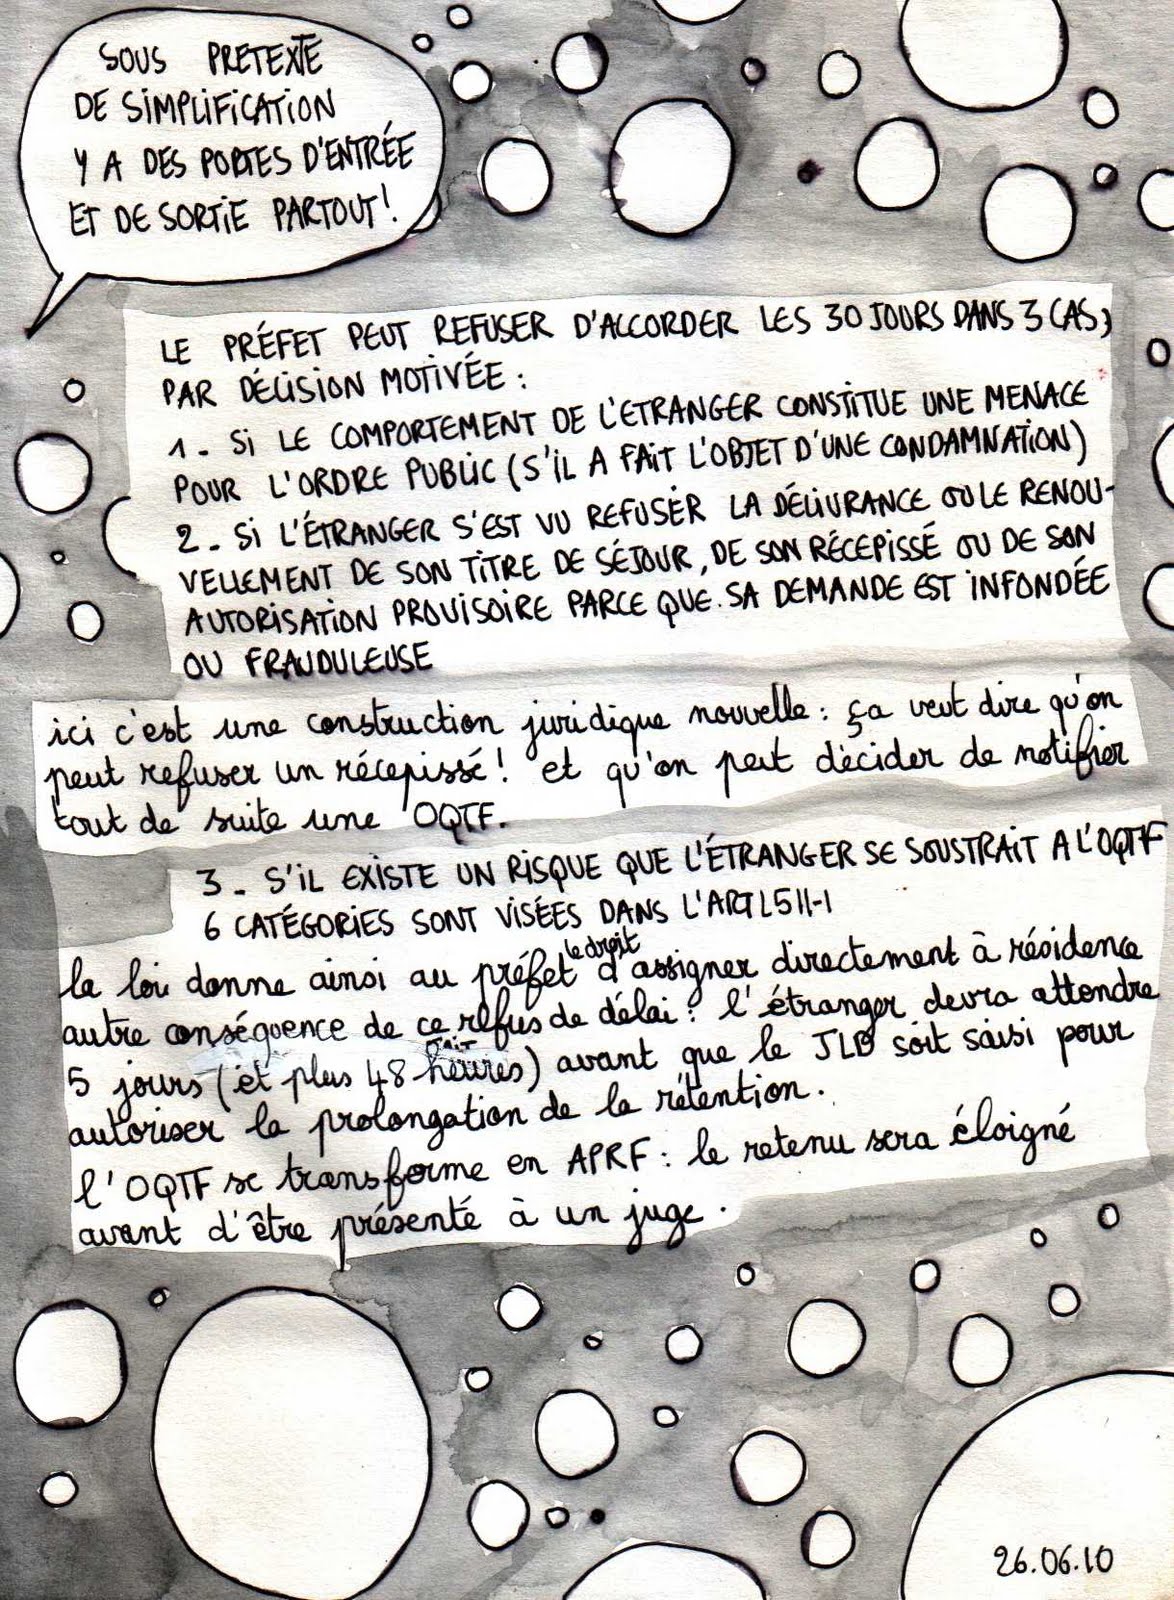 SOUS PRETEXTE
DE SIMPLIFICATION
Y A DES PORTES D'ENTRÉE
ET DE SORTIE PARTOUT!
LE PRÉFET PEUT REFUSER D'ACCORDER LES 30 JOURS DANS 3 CAS,
PAR DÉCISION MOTIVÉE :
1 - SI LE COMPORTEMENT DE L'ETRANGER CONSTITUE UNE MENACE
POUR L'ORDRE PUBLIC (S'IL A FAIT L'OBJET D'UNE CONDAMNATION)
2 - SI L'ÉTRANGER S'EST VU REFUSER LA DÉLIVRANCE OU LE RENOU-
VELLEMENT DE SON TITRE DE SÉJOUR, DE SON RÉCEPISSÉ OU DE SON
AUTORISATION PROVISOIRE PARCE QUE SA DEMANDE EST INFONDÉE
OU FRAUDULEUSE
ici c'est une construction juridique nouvelle : ça veut dire qu'on
peut refuser un récepissé! et qu'on peut décider de notifier
tout de suite une OQTF.
3 - S'IL EXISTE UN RISQUE QUE L'ÉTRANGER SE SOUSTRAIT A L'OQTF
6 CATÉGORIES SONT VISÉES DANS L'ART L511-1
la loi donne ainsi au préfet le droit d'assigner directement à résidence
autre conséquence de ce refus de délai : l'étranger devra attendre
5 jours (et plus 48 heures) avant que le JLD soit saisi pour
autoriser la prolongation de la rétention.
l'OQTF se transforme en APRF : le retenu sera éloigné
avant d'être présenté à un juge.
26.06.10